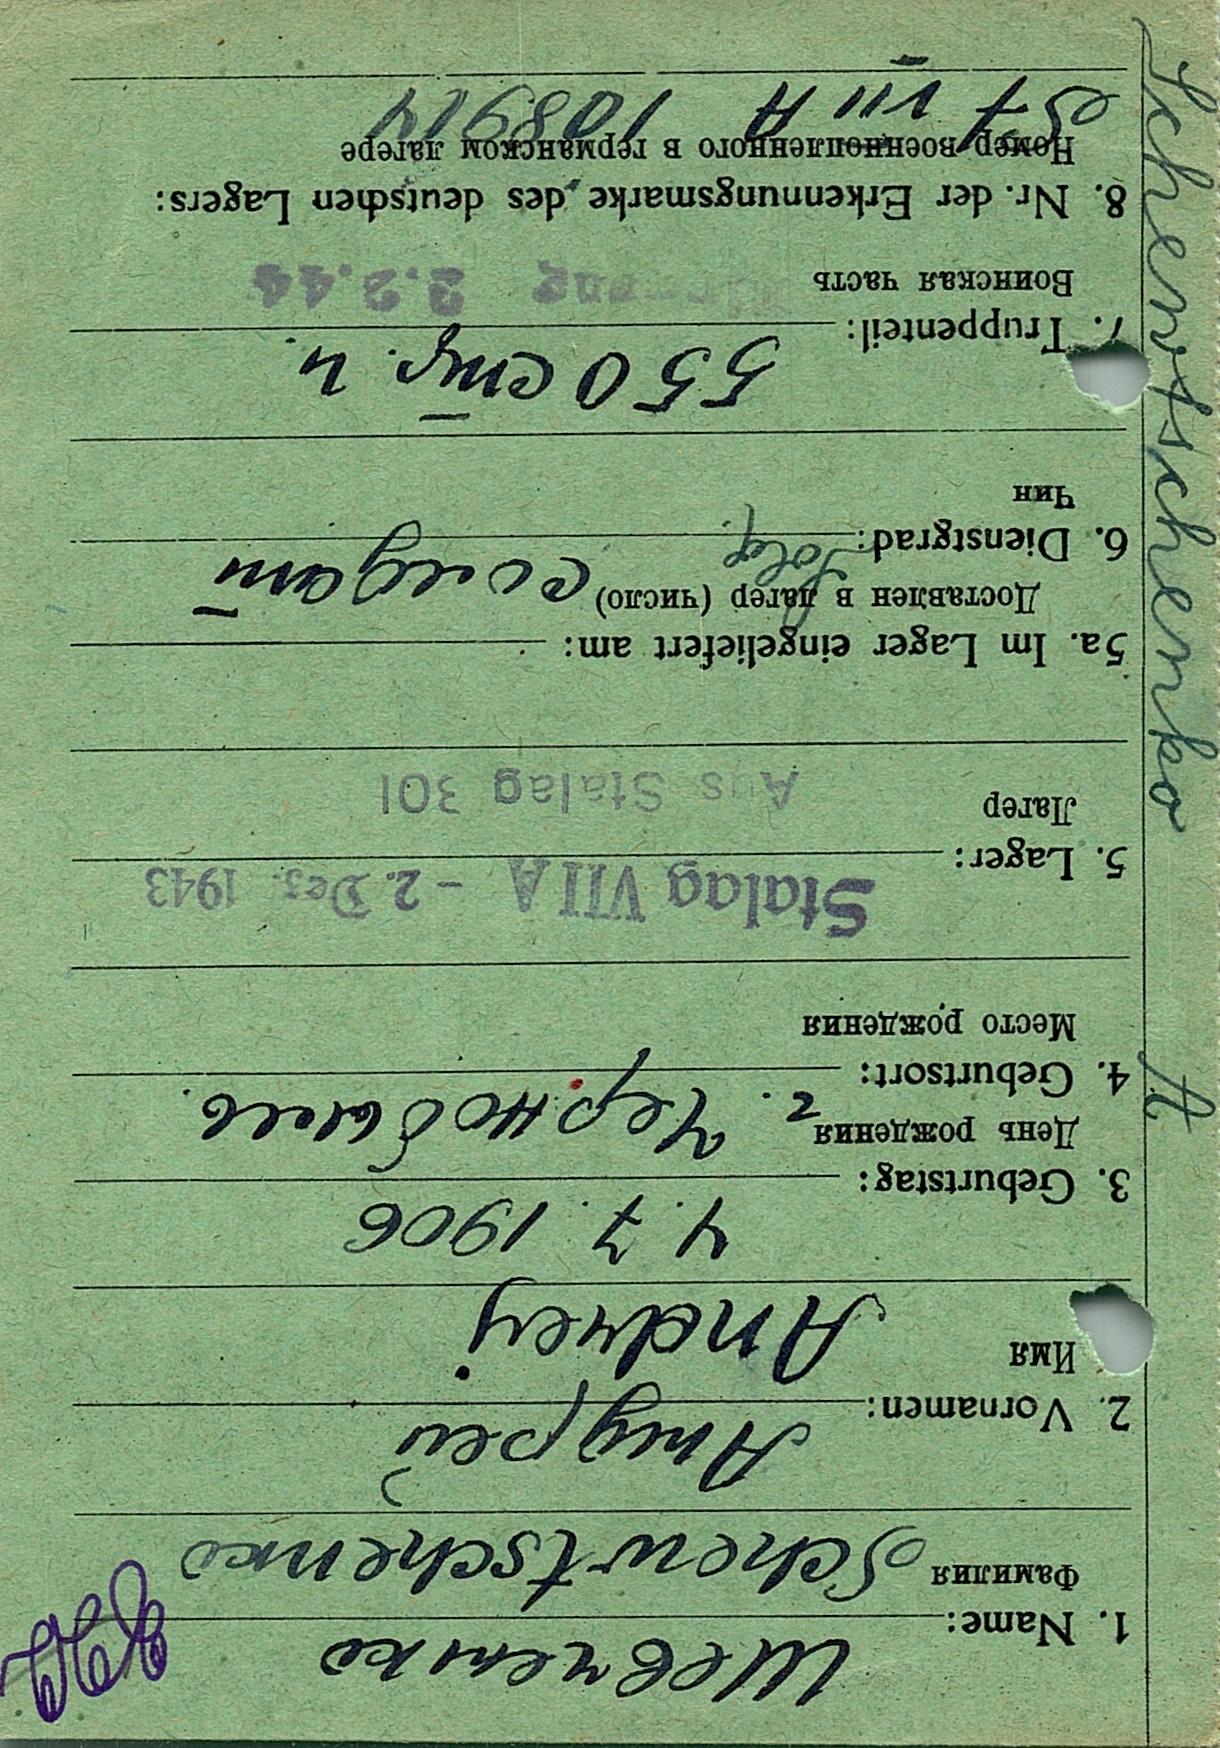 Шевченко
1. Name:
Фамилия Schewtschenko
Андрей
2. Vornamen:
Имя Andrej
4. 7. 1906
3. Geburtstag:
День рождения
г. Чернобыль.
4. Geburtsort:
Место рождения
Stalag VII A - 2. Dez. 1943
5. Lager:
Лагер
Aus Stalag 301
5a. Im Lager eingeliefert am:
Доставлен в лагер (число)
солдат
6. Dienstgrad: Sold.
Чин
550 стр. п.
7. Truppenteil:
Воинская часть
2.2.44
8. Nr. der Erkennungsmarke des deutschen Lagers:
Номер военнопленного в германском лагере
St VIII A 108914
Schewtschenko A.